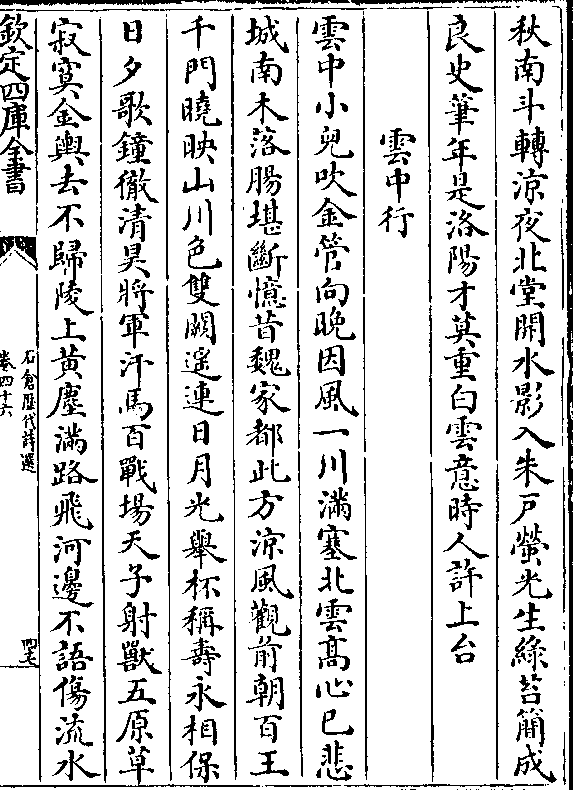 秋南斗轉凉夜北堂開水影入朱戸螢光生綠苔簡成
良史筆年是洛陽才莫重白雲意時人許上台
雲中行
雲中小兒吹金管向晚因風一川滿塞北雲髙心已悲
城南木落腸堪斷憶昔魏家都此方凉風觀前朝百王
千門曉映山川色雙闕遥連日月光舉杯稱壽永相保
日夕歌鐘徹清昊將軍汗馬百戰塲天子射獸五原草
寂寞金輿去不歸陵上黄塵滿路飛河邊不語傷流水
欽定四庫全書
石倉歷代詩選
卷四十六
四七